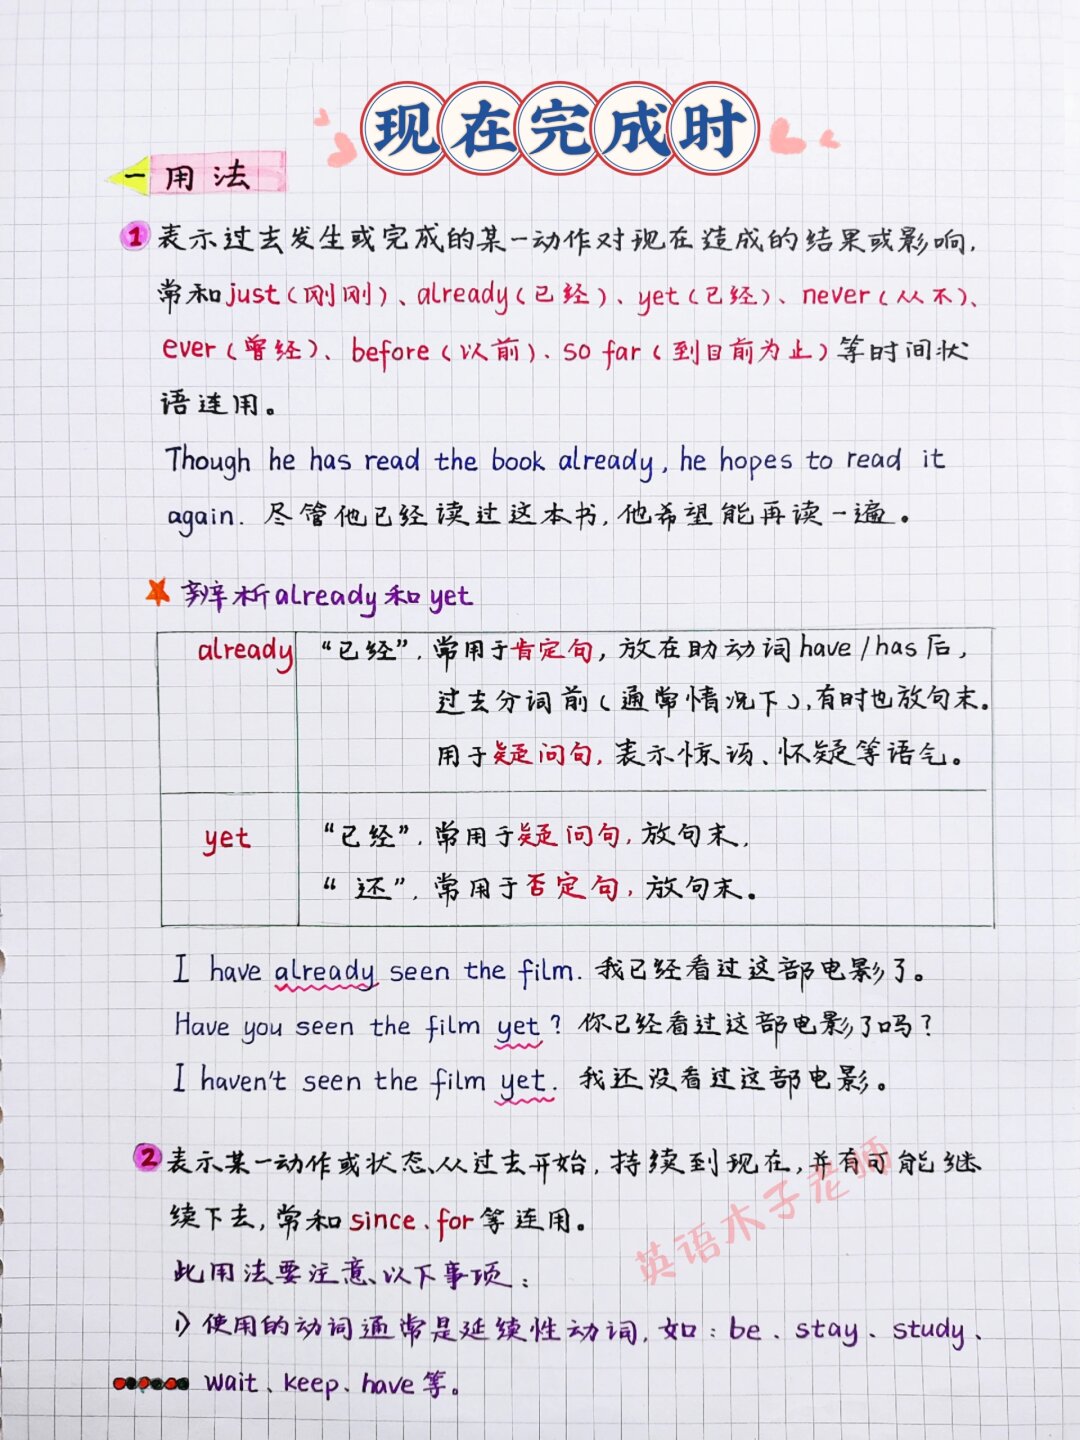 现在完成时
一 用法
1 表示过去发生或完成的某一动作对现在造成的结果或影响,
常和just(刚刚)、already(已经)、yet(已经)、never(从不)、
ever(曾经)、before(以前)、so far(到目前为止)等时间状
语连用。
Though he has read the book already, he hopes to read it
again. 尽管他已经读过这本书, 他希望能再读一遍。
辨析already和yet
already “已经”, 常用于肯定句, 放在助动词have/has后,
过去分词前(通常情况下), 有时也放句末。
用于疑问句, 表示惊讶、怀疑等语气。
yet “已经”, 常用于疑问句, 放句末,
“还”, 常用于否定句, 放句末。
I have already seen the film. 我已经看过这部电影了。
Have you seen the film yet? 你已经看过这部电影了吗?
I haven't seen the film yet. 我还没看过这部电影。
2 表示某一动作或状态、从过去开始, 持续到现在, 并有可能继
续下去, 常和since、for等连用。
此用法要注意、以下事项:
1) 使用的动词通常是延续性动词, 如: be、stay、study、
wait、keep、have等。
英语木子老师